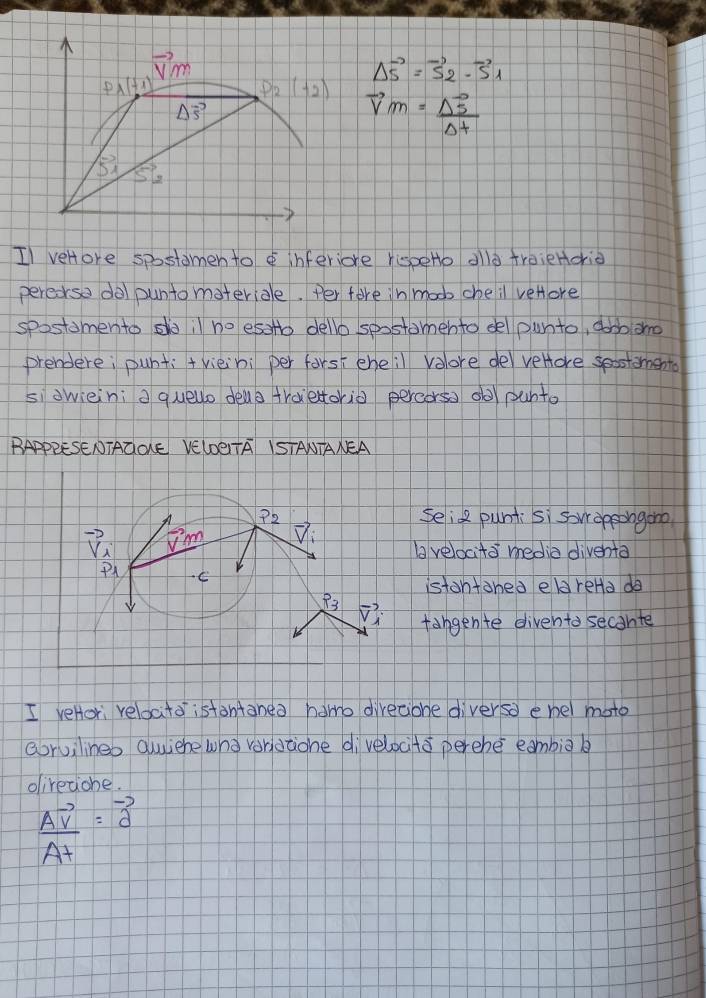 V⃗m
P1(t1)
P2 (t2)
Δs⃗
S⃗1
S⃗2
Δs⃗ = s⃗2 - s⃗1
V⃗m = Δs⃗
Δt
Il vettore spostamento è inferiore rispetto alla traiettoria
percorsa dal punto materiale. Per fare in modo che il vettore
spostamento sia il no esatto dello spostamento del punto, dobbiamo
prendere i punti + vicini per farsi che il valore del vettore spostamento
si avvicini a quello della traiettoria percorsa dal punto
RAPPRESENTAZIONE VELOCITÀ ISTANTANEA
V⃗i
P1
V⃗m
P2
V⃗i
.c
P3
V⃗i
Se i 2 punti si sovrappongono,
la velocità media diventa
istantanea e la retta da
tangente diventa secante
I vettori velocità istantanea hanno direzione diversa e nel moto
curvilineo avviene una variazione di velocità perché cambia la
direzione.
Δv⃗ = a⃗
Δt